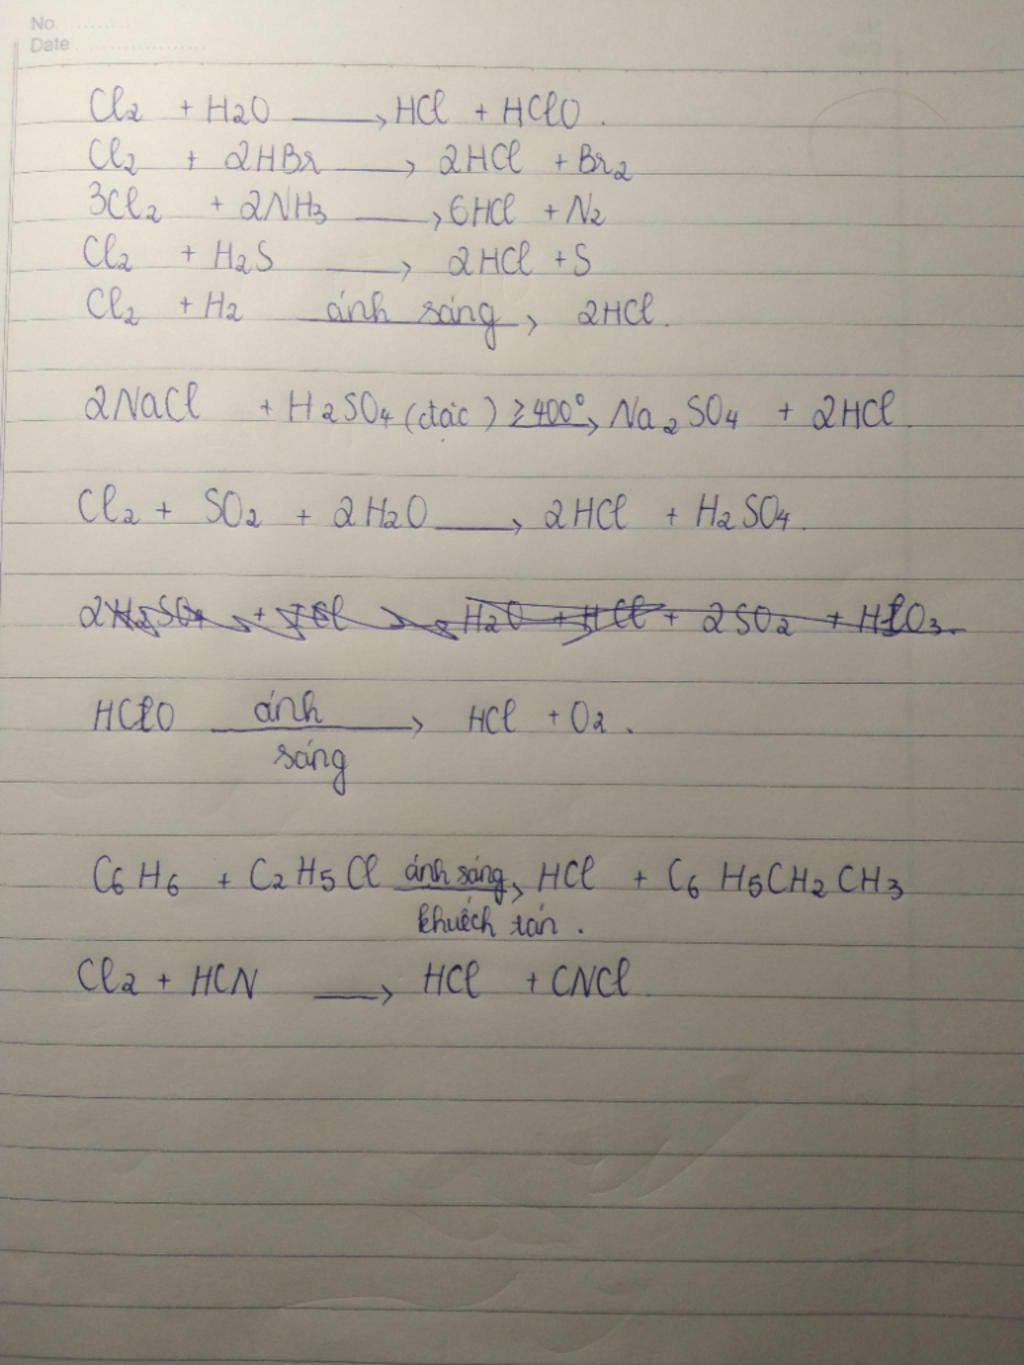 No. ..........
Date ....................
Cl2 + H2O ⟶ HCl + HClO.
Cl2 + 2HBr ⟶ 2HCl + Br2
3Cl2 + 2NH3 ⟶ 6HCl + N2
Cl2 + H2S ⟶ 2HCl + S
Cl2 + H2 ánh sáng⟶ 2HCl.
2NaCl + H2SO4 (đặc) ≥400°⟶ Na2SO4 + 2HCl.
Cl2 + SO2 + 2H2O ⟶ 2HCl + H2SO4.
H2O + HCl + 2SO2
HClO ánh ⟶ HCl + O2.
sáng
C6H6 + C2H5Cl ánh sáng⟶ HCl + C6H5CH2CH3
khuếch tán.
Cl2 + HCN ⟶ HCl + CNCl.